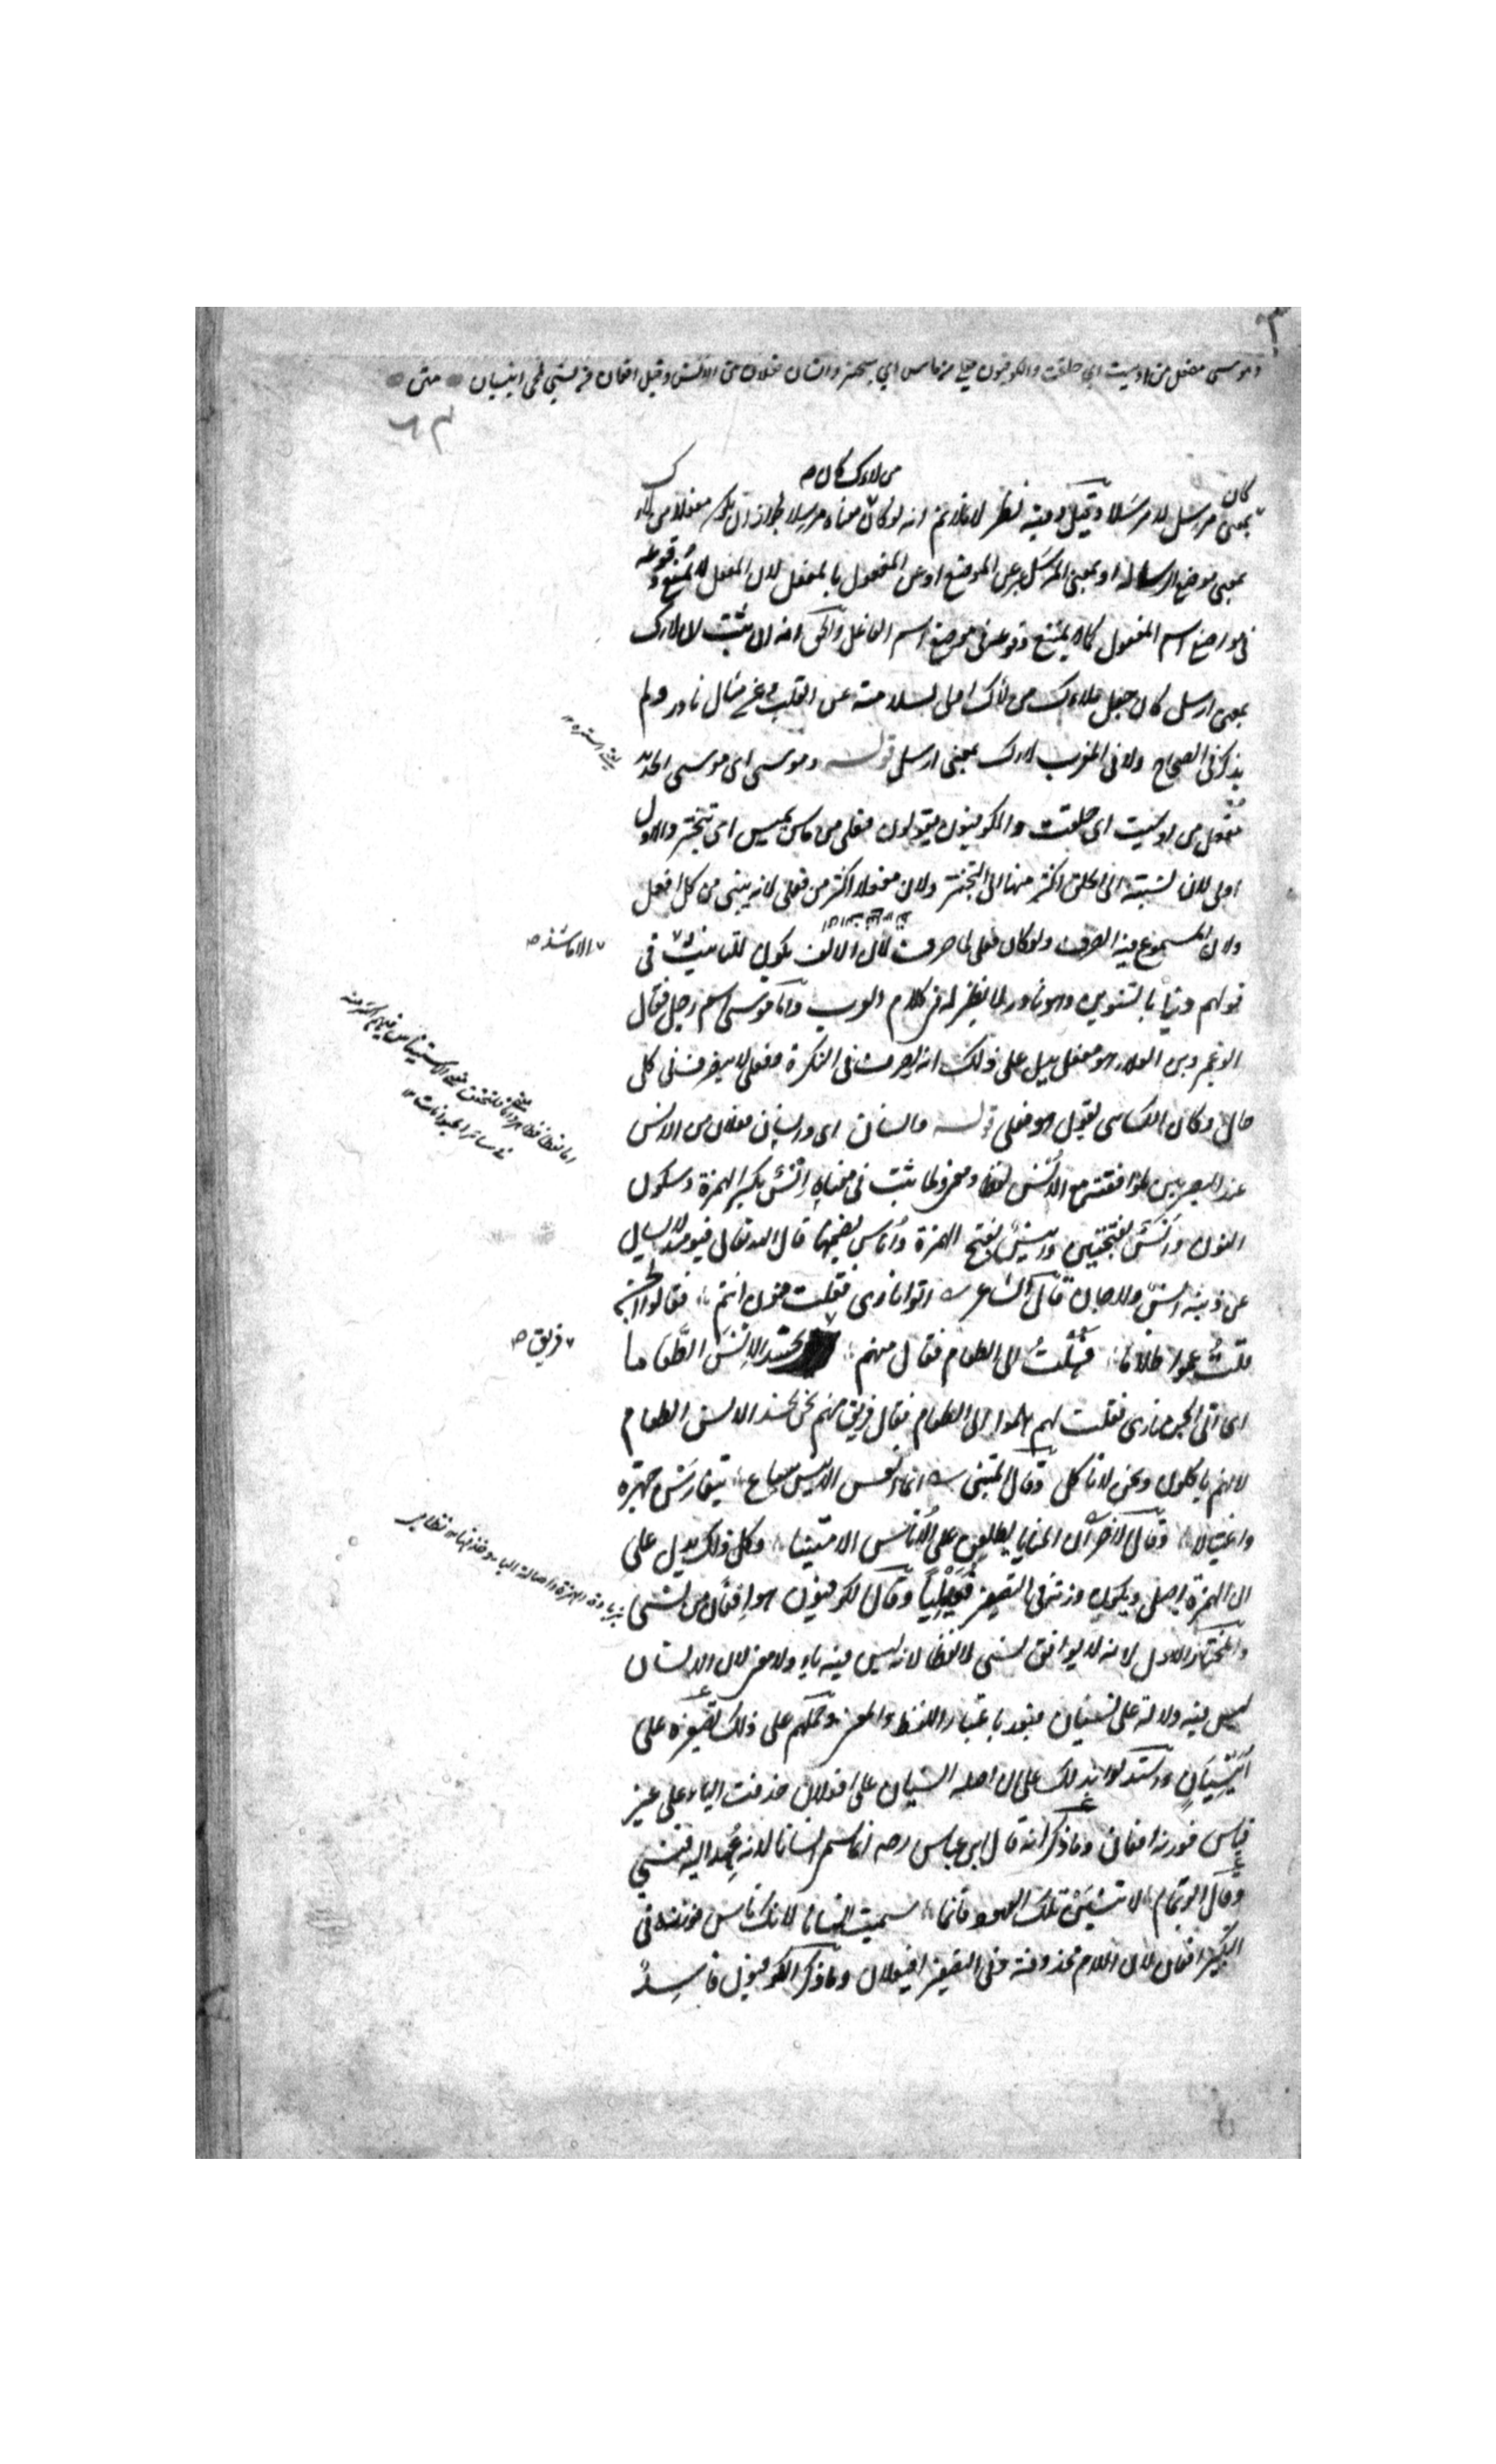 وموسى مفعل من اوسيت اي حلقت والكوفيون فعلى من ماس اي تبختر وانسان فعلان من الانس وقيل افعان من نسي لمجئ انيسيان متن
٦٣
من لاءك كان م
بمعنى مرسل لا مرسَلا وقيل وفيه نظر لانا لانم انه لو كان معناه مرسلا بطلان ان يكون مفعلا من لاك
بمعنى موضع الرسالة او بمعنى المرسَل عبر عن الموضع او عن المفعول بالمفعل لان المفعل لا يمتنع وقوعه
في مواضع اسم المفعول كما لا يمتنع وقوعه في موضع اسم الفاعل والحق انه ان ثبت ان لاك
بمعنى ارسل كان جعل ملاءك من لأك اولى لسلامته عن القلب وعن مثال نادر ولم
يذكر في الصحاح ولا في المغرب لاك بمعنى ارسل قوله وموسى اى موسى الحديد
مفعل من اوسيت اى حلقت والكوفيون يقولون فعلى من ماس يميس اى تبختر والاول
اولى لان نسبته الى الحلق اكثر منها الى التبختر ولان مفعلا اكثر من فعلى لانه يبنى من كل افعل
ولان المسموع فيه الصرف ولو كان فعلى لما صرفت لان الالف يكون للتانيث في
الا ما شذ م
قولهم دنيًا بالتنوين وهو نادر لا نظير له في كلام العرب واما موسى اسم رجل فقال
ابو عمرو بن العلاء هو مفعل يدل على ذلك انه يصرف في النكرة وفعلى لا ينصرف على كل
حال وكان الكسائى يقول هو فعلى قوله وانسان اى وانسان فعلان من الانس
عند البصريين لموافقته مع الانس لفظا ومعنى ولما ثبت في معناه إنْس بكسر الهمزة وسكون
النون وأَنَس بفتحتين وانيس بفتح الهمزة وأناس بضمها قال الله تعالى فيومئذ لا يسال
عن ذنبه انس ولا جان قال الشاعر اتوا نارى فقلت منون انتم فقالوا الجن
قلت عموا ظلاما فقلت الى الطعام فقال منهم نحسد الإنس الطعاما
فريق م
اى اتى الجن نارى فقلت لهم هلموا الى الطعام فقال فريق منهم نحن نحسد الانس الطعام
لانهم ياكلون ونحن لا ناكل وقال المتنبى انما انفس الانيس سباع يتفارسن جهرة
واغتيالا وقال الاخر ان المنايا يطلعن على الأناس الامنينا وكل ذلك يدل على
ان الهمزة اصلى ويكون وزنه في التصغير فعيليانا وقال الكوفيون هو افعان من نسى
والمختار الاول لانه لا يوافق نسى لا لفظا لانه ليس فيه ياء ولا معنى لان الانسان
ليس فيه دلالة على نسيان فبعد باعتبار اللفظ والمعنى وحملهم على ذلك تصغيره على
أنيسيان واستدلوا بذلك على ان اصله انسيان على افعلان حذفت الياء على غير
قياس فوزنه افعان وما ذكر انه قال ابن عباس رضه انما سمى انسانا لانه عُهد اليه فنسي
وقال ابو تمام لا تنسين تلك العهود فانما سميت انسانا لانك ناس فوزنه في
التكبير افعان لان اللام محذوفة وفى التصغير افيعلان وما ذكر الكوفيون فاسد